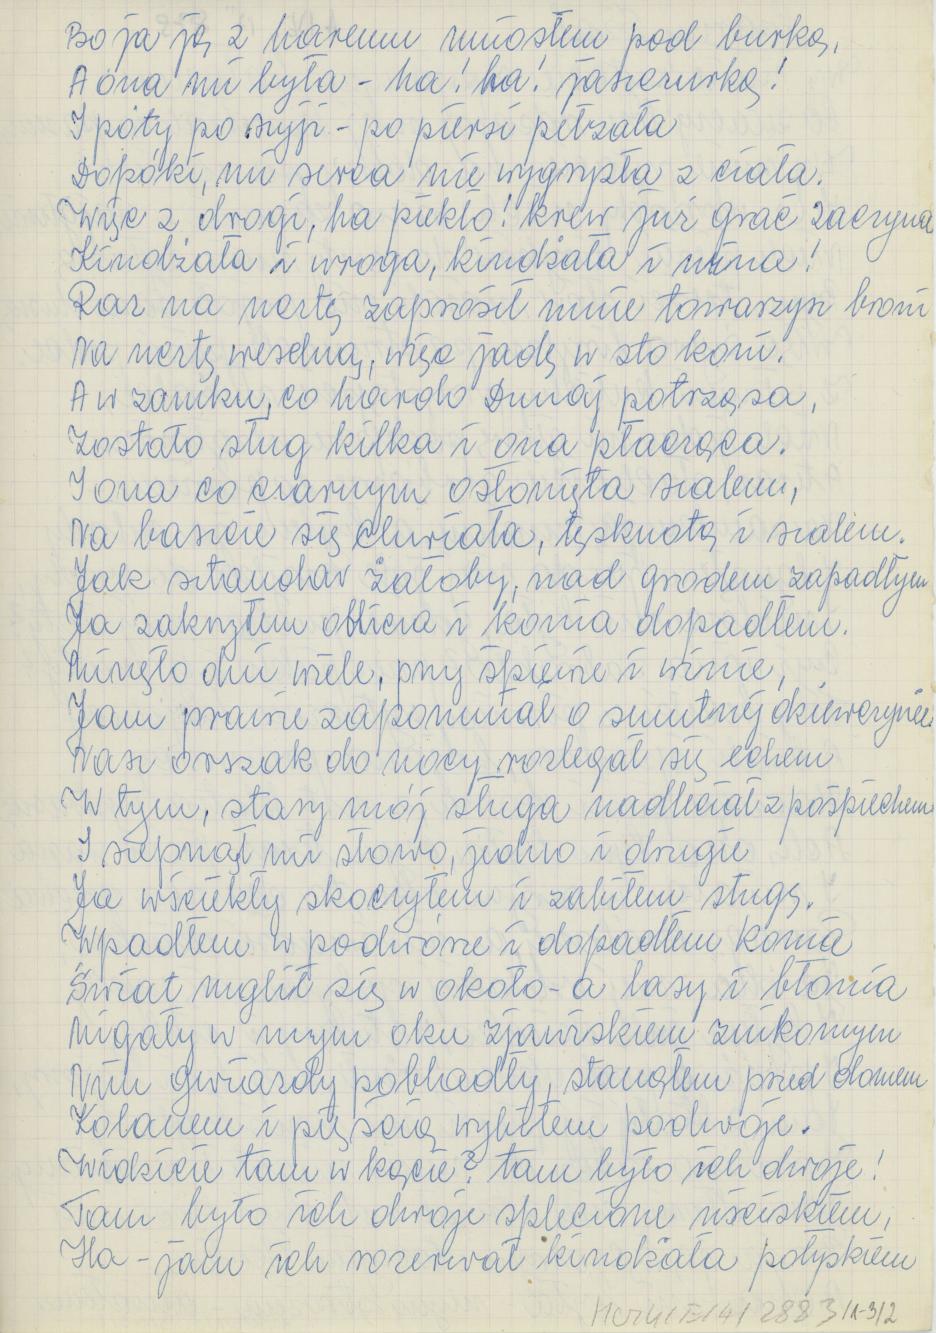 Bo ja ją z haremu uniosłem pod burką,
A ona mi była - ha! ha! jaszczurką!
I póty po szyji - po piersi pełzała
Dopóki, mi serca nie wygryzła z ciała.
Więc z drogi, ha piekło! krew już grać zaczyna
Kindżała i wroga, kindżała i wina!
Raz na ucztę zaprosił mnie towarzysz broni
Na ucztę weselną, więc jadę w sto koni.
A w zamku, co hardo Dunaj potrząsa,
Zostało sług kilka i ona płacząca.
I ona co czarnym osłonięta szalem,
Na baszcie się chwiała, tęsknotą i szalem.
Jak sztandar żałoby, nad grodem zapadłym
Ja zakryłem oblicza i konia dopadłem.
Minęło dni wiele, przy śpiewie i winie,
Jam prawie zapomniał o smutnéj dziewczynie.
Nasz orszak do nocy rozlegał się echem
W tym, stary mój sługa nadleciał z pośpiechem
I szepnął mi słowo, jedno i drugie
Ja wściekły skoczyłem i zabiłem sługę.
Wpadłem w podwórze i dopadłem konia
Świat mglił się w około - a lasy i błonia
Migały w mym oku zjawiskiem znikomym
Nim gwiazdy pobladły, stanąłem przed domem
Kolanem i pięścią wybiłem podwoje.
Widzicie tam w kącie? tam było ich dwoje!
Tam było ich dwoje splecione uściskiem,
Ha - jam ich rozerwał kindżała połyskiem
2883/1-3/2